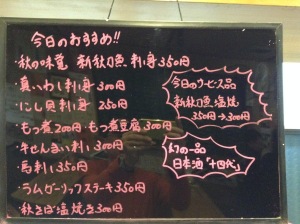 今日のおすすめ!!
・秋の味覚 新秋刀魚 刺身 350円
・真いわし刺身 300円
・にし貝刺身 250円
・もつ煮 200円・もつ煮豆腐 300円
・牛せんまい刺し 300円
・馬刺し 350円
・ラムガーリックステーキ 350円
・秋さば塩焼き 300円
今日のサービス品
新秋刀魚 塩焼
350円→300円
幻の一品
日本酒「十四代」